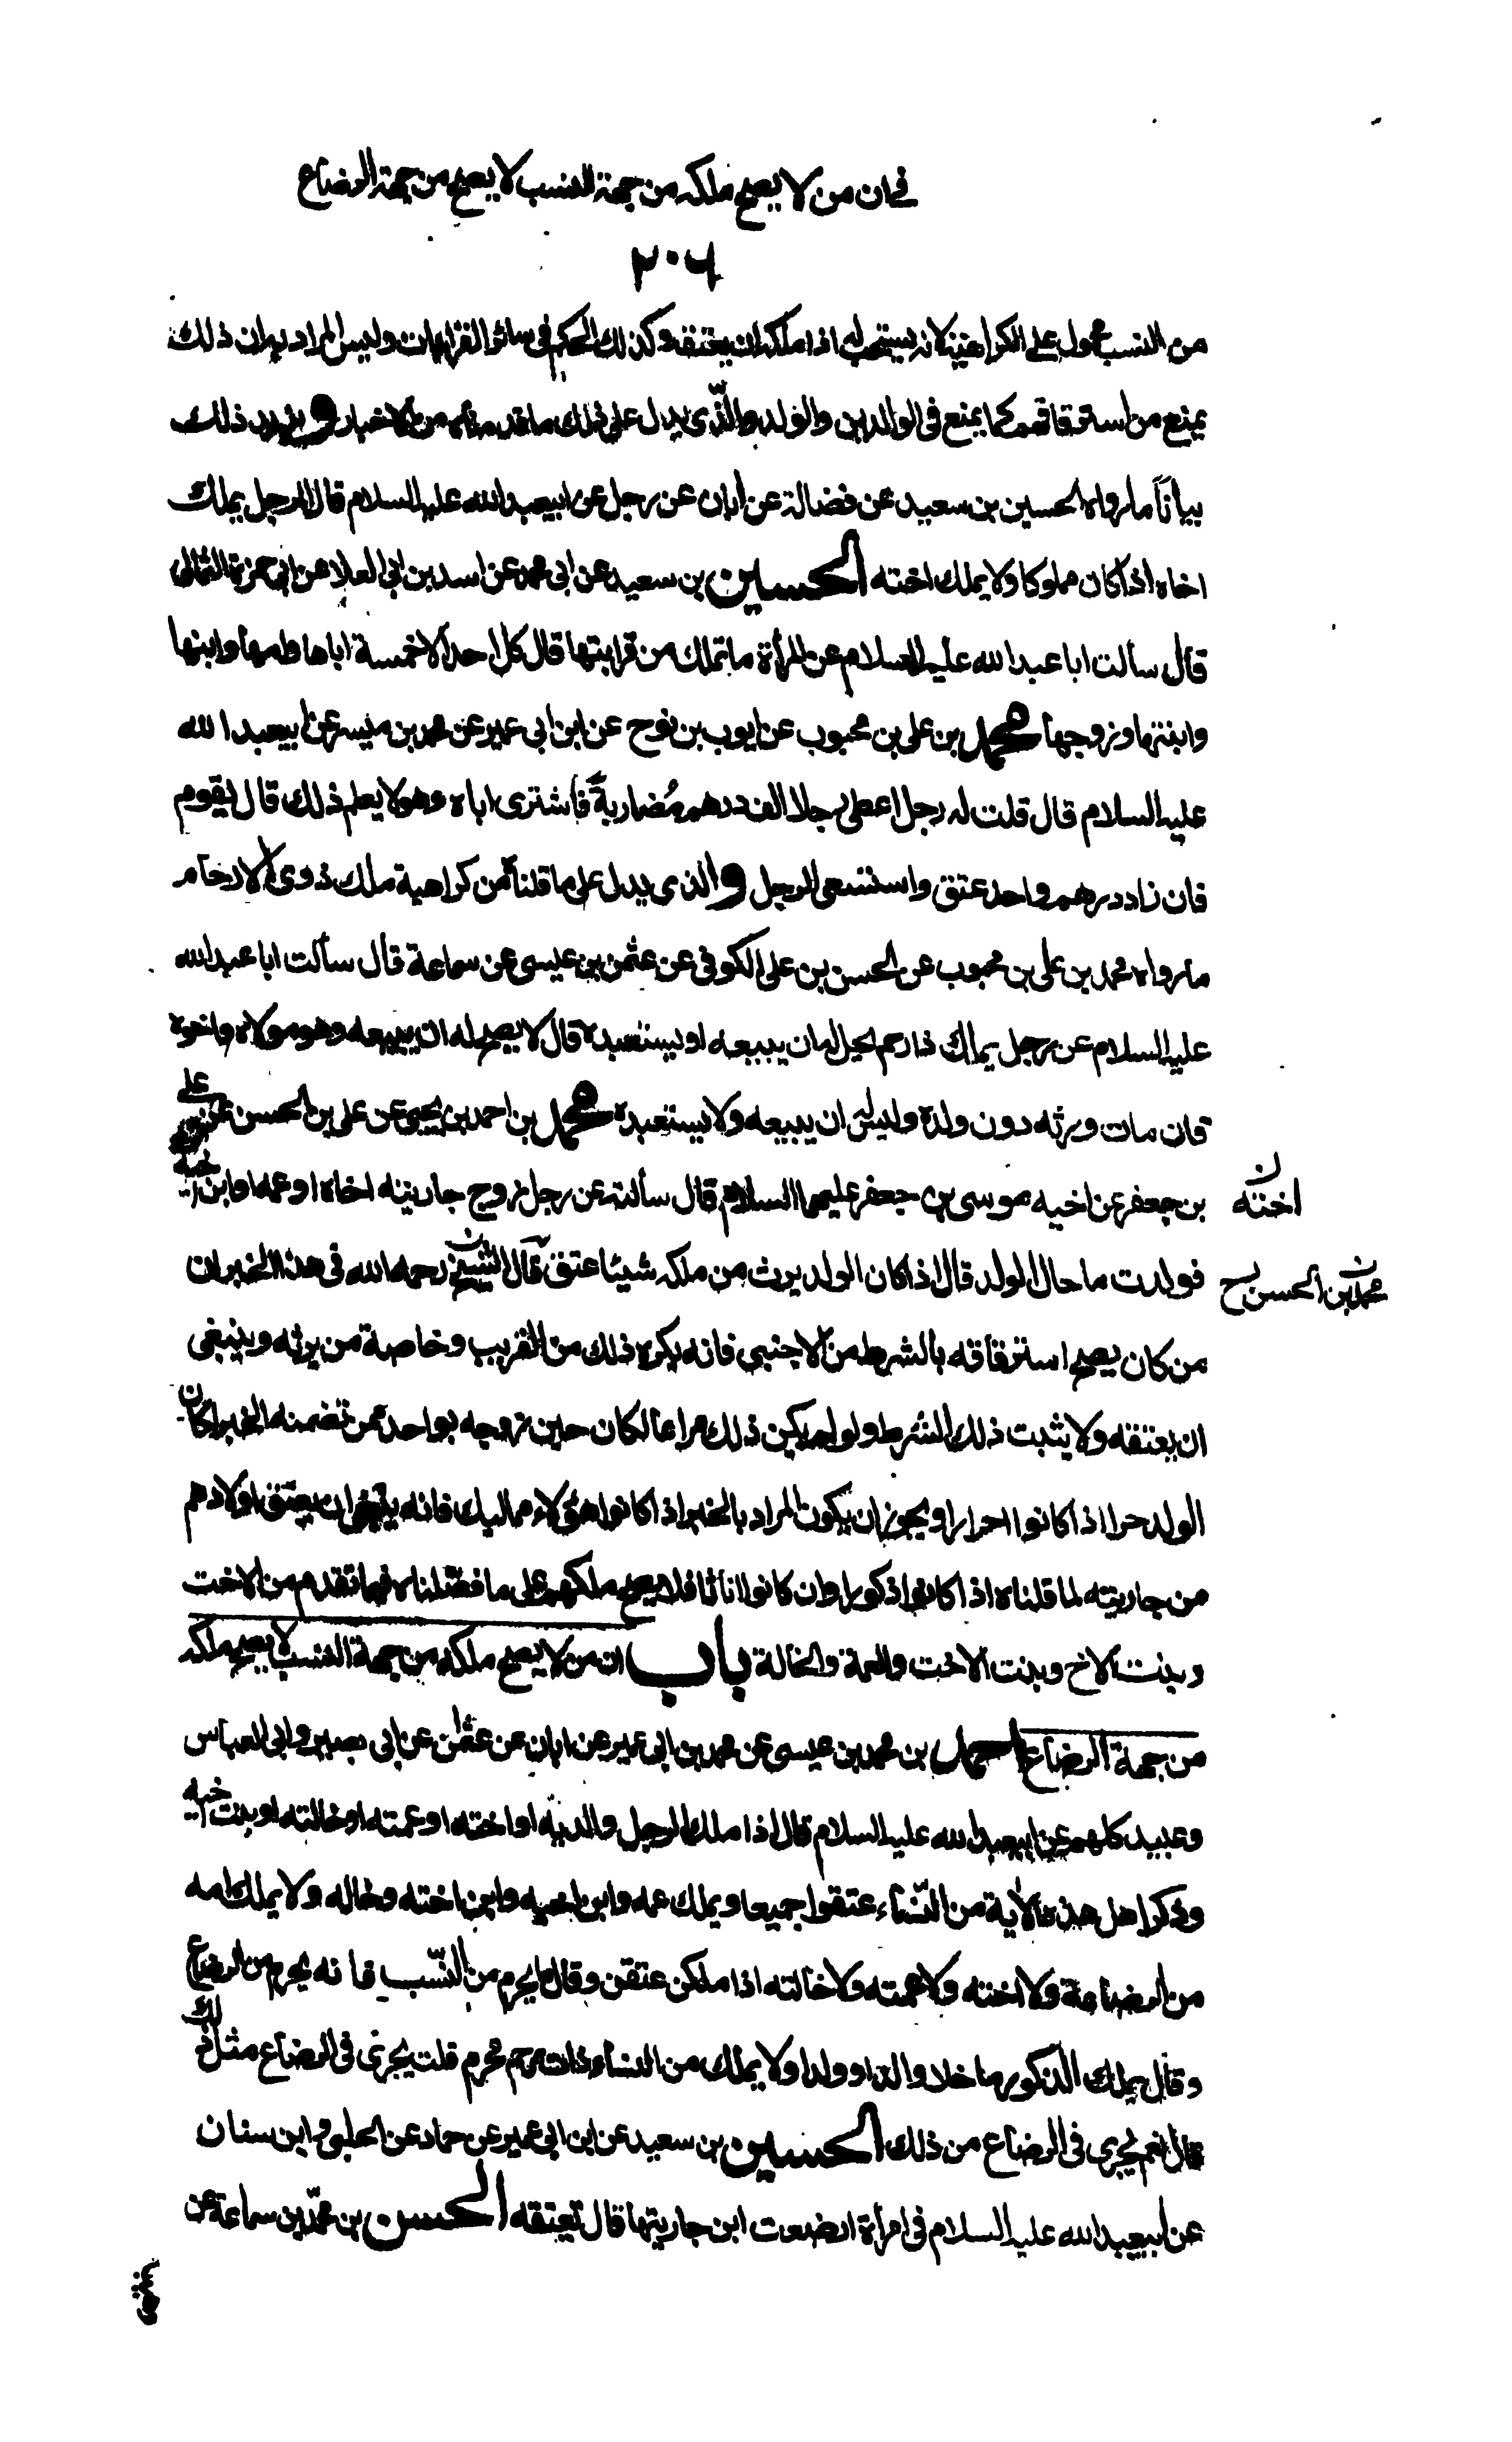 في ان من لا يصح ملكه من جهة النسب لا يصح من جهة الرضاع
٢٠٦
من النسب محمول على الكراهية لانه يستحب له اذا ملكه ان يعتقه وكذلك الحكم في سائر القرابات وليس المراد به ان ذلك
يمنع من استرقاقهم كما يمنع في الوالدين والولد والذي يدل على ذلك ما قدمناه من الاخبار و يزيد ذلك
بياناً ما رواه الحسين بن سعيد عن فضالة عن ابان عن رجل عن ابيعبد الله عليه السلام قال الرجل يملك
اخاه اذا كان مملوكا ولا يملك اخته الحسين بن سعيد عن ابي محمد عن اسد بن ابي العلا عن ابي حمزة الثمالي
قال سألت ابا عبد الله عليه السلام عن المرأة ما تملك من قرابتها قال كل احد الا خمسة اباها وامها وابنها
وابنتها وزوجها محمد بن علي بن محبوب عن ايوب بن نوح عن ابن ابي عمير عن محمد بن ميسر عن ابيعبد الله
عليه السلام قال قلت له رجل اعطى رجلا الف درهم مُضاربةً فاشترى اباه وهو لا يعلم ذلك قال يقوم
فان زاد درهم واحد عتق واستسعى الرجل والذي يدل على ما قلناه من كراهية ملك ذوي الارحام
ما رواه محمد بن علي بن محبوب عن الحسن بن علي الكوفي عن عثمن بن عيسى عن سماعة قال سألت ابا عبد الله
عليه السلام عن رجل يملك ذا رحم يحل له ان يبيعه او يستعبده قال لا يصلح له ان يبيعه وهو مولاه واخوه
فان مات ورثه دون ولده وليس له ان يبيعه ولا يستعبده محمد بن احمد بن يحيى عن علي بن الحسن عن علي
بن جعفر عن اخيه موسى بن جعفر عليهما السلام قال سألته عن رجل زوج جاريته اخاه او عمه او ابن اخيه
اخته ن
فولدت ما حال الولد قال اذا كان الولد يرث من ملكه شيئا عتق قال الشيخ رحمه الله في هذا الخبر ان
محمد بن الحسن ن
من كان يصح استرقاقه بالشرط من الاجنبي فانه يكره ذلك من القريب وخاصة من يرثه وينبغي
ان يعتقه ولا يثبت ذلك الشرط ولو لم يكن ذلك مراعا لكان حين زوجه بواحد ممن تضمنه الخبر لكان
الولد حرا اذا كانوا احرارا ويجوز ان يكون المراد بالخبر اذا كانوا هؤلاء مماليك فانه ينبغي ان يعتق اولادهم
من جاريته لما قلناه اذا كانوا ذكورا وان كانوا اناثا فلا يصح ملكهم على ما فصّلناه فيما تقدم من الاخت
وبنت الاخ وبنت الاخت والعمة والخالة باب ان من لا يصح ملكه من جهة النسب لا يصح ملكه
من جهة الرضاع احمد بن محمد بن عيسى عن محمد بن ابي عمير عن ابان عن عثمن عن ابي بصير وابي العباس
وعبيد كلهم عن ابيعبد الله عليه السلام قال اذا ملك الرجل والديه او اخته او عمته او خالته او بنت اخيه
وذكر اهل هذه الاية من النّساء عتقوا جميعا ويملك عمه وابن اخيه وابن اخته وخاله ولا يملك امه
من الرضاعة ولا اخته ولا عمته ولا خالته اذا ملكن عتقن وقال ما يحرم من النّسب فانه يحرم من الرضاع
وقال يملك الذكور ما خلا والدا او ولدا ولا يملك من النساء ذات رحم محرم قلت يجري في الرضاع مثل ذلك
قال نعم يجري في الرضاع من ذلك الحسين بن سعيد عن ابن ابي عمير عن حماد عن الحلبي وابن سنان
عن ابيعبد الله عليه السلام في امرأة ارضعت ابن جاريتها قال تعتقه الحسن بن محمّد بن سماعة عن